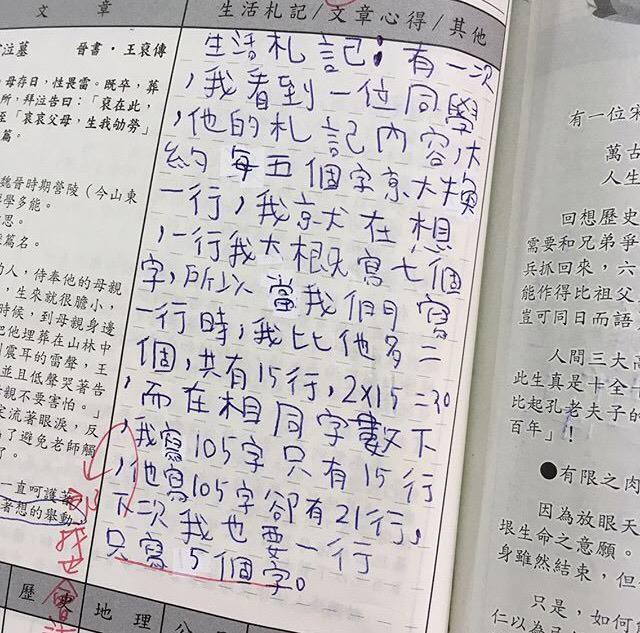 文 章
生活札記/文章心得/其他
泣墓 晉書・王裒傳
母存日，性畏雷。既卒，葬
所，拜泣告曰：「裒在此，
至「哀哀父母，生我劬勞」
篇。
魏晉時期營陵（今山東
學多能。
思。
篇名。
的人，侍奉他的母親
，生來就很膽小，
時候，到母親身邊
把他埋葬在山林中
到震耳的雷聲，王
並且低聲哭著告
母親不要害怕。」
定流著眼淚，反
為了避免老師觸
了。
一直呵護著
著想的舉動，
生活札記：有一次
，我看到一位同學
，他的札記內容大
約每五個字就換
一行，我就在想
，一行我大概寫七個
字，所以當我們寫
一行時，我比他多二
個，共有15行，2×15=30
，而在相同字數下
，我寫105字只有15行
，他寫105字卻有21行，
下次我也要一行
只寫5個字。
歷史
地理
有一位宋
萬古
人生
回想歷史
需要和兄弟爭
兵抓回來，六
能作得比祖父
豈可同日而語
人間三大
此生真是十全
比起孔老夫子的
百年」！
●有限之肉
因為放眼天
垠生命之意願。
身雖然結束，但
只是，如何
仁以為己